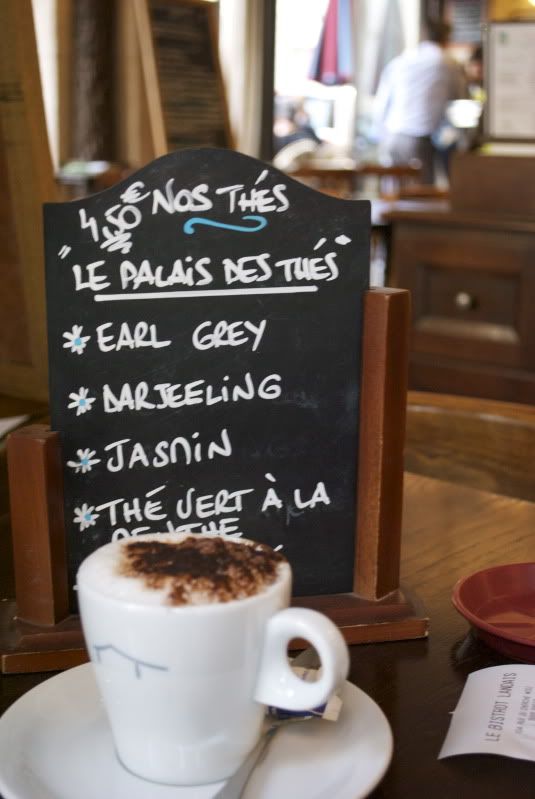 4,50€ NOS THÉS
"LE PALAIS DES THÉS"
EARL GREY
DARJEELING
JASMIN
THÉ VERT À LA
MENTHE
LE BISTROT LANDAIS